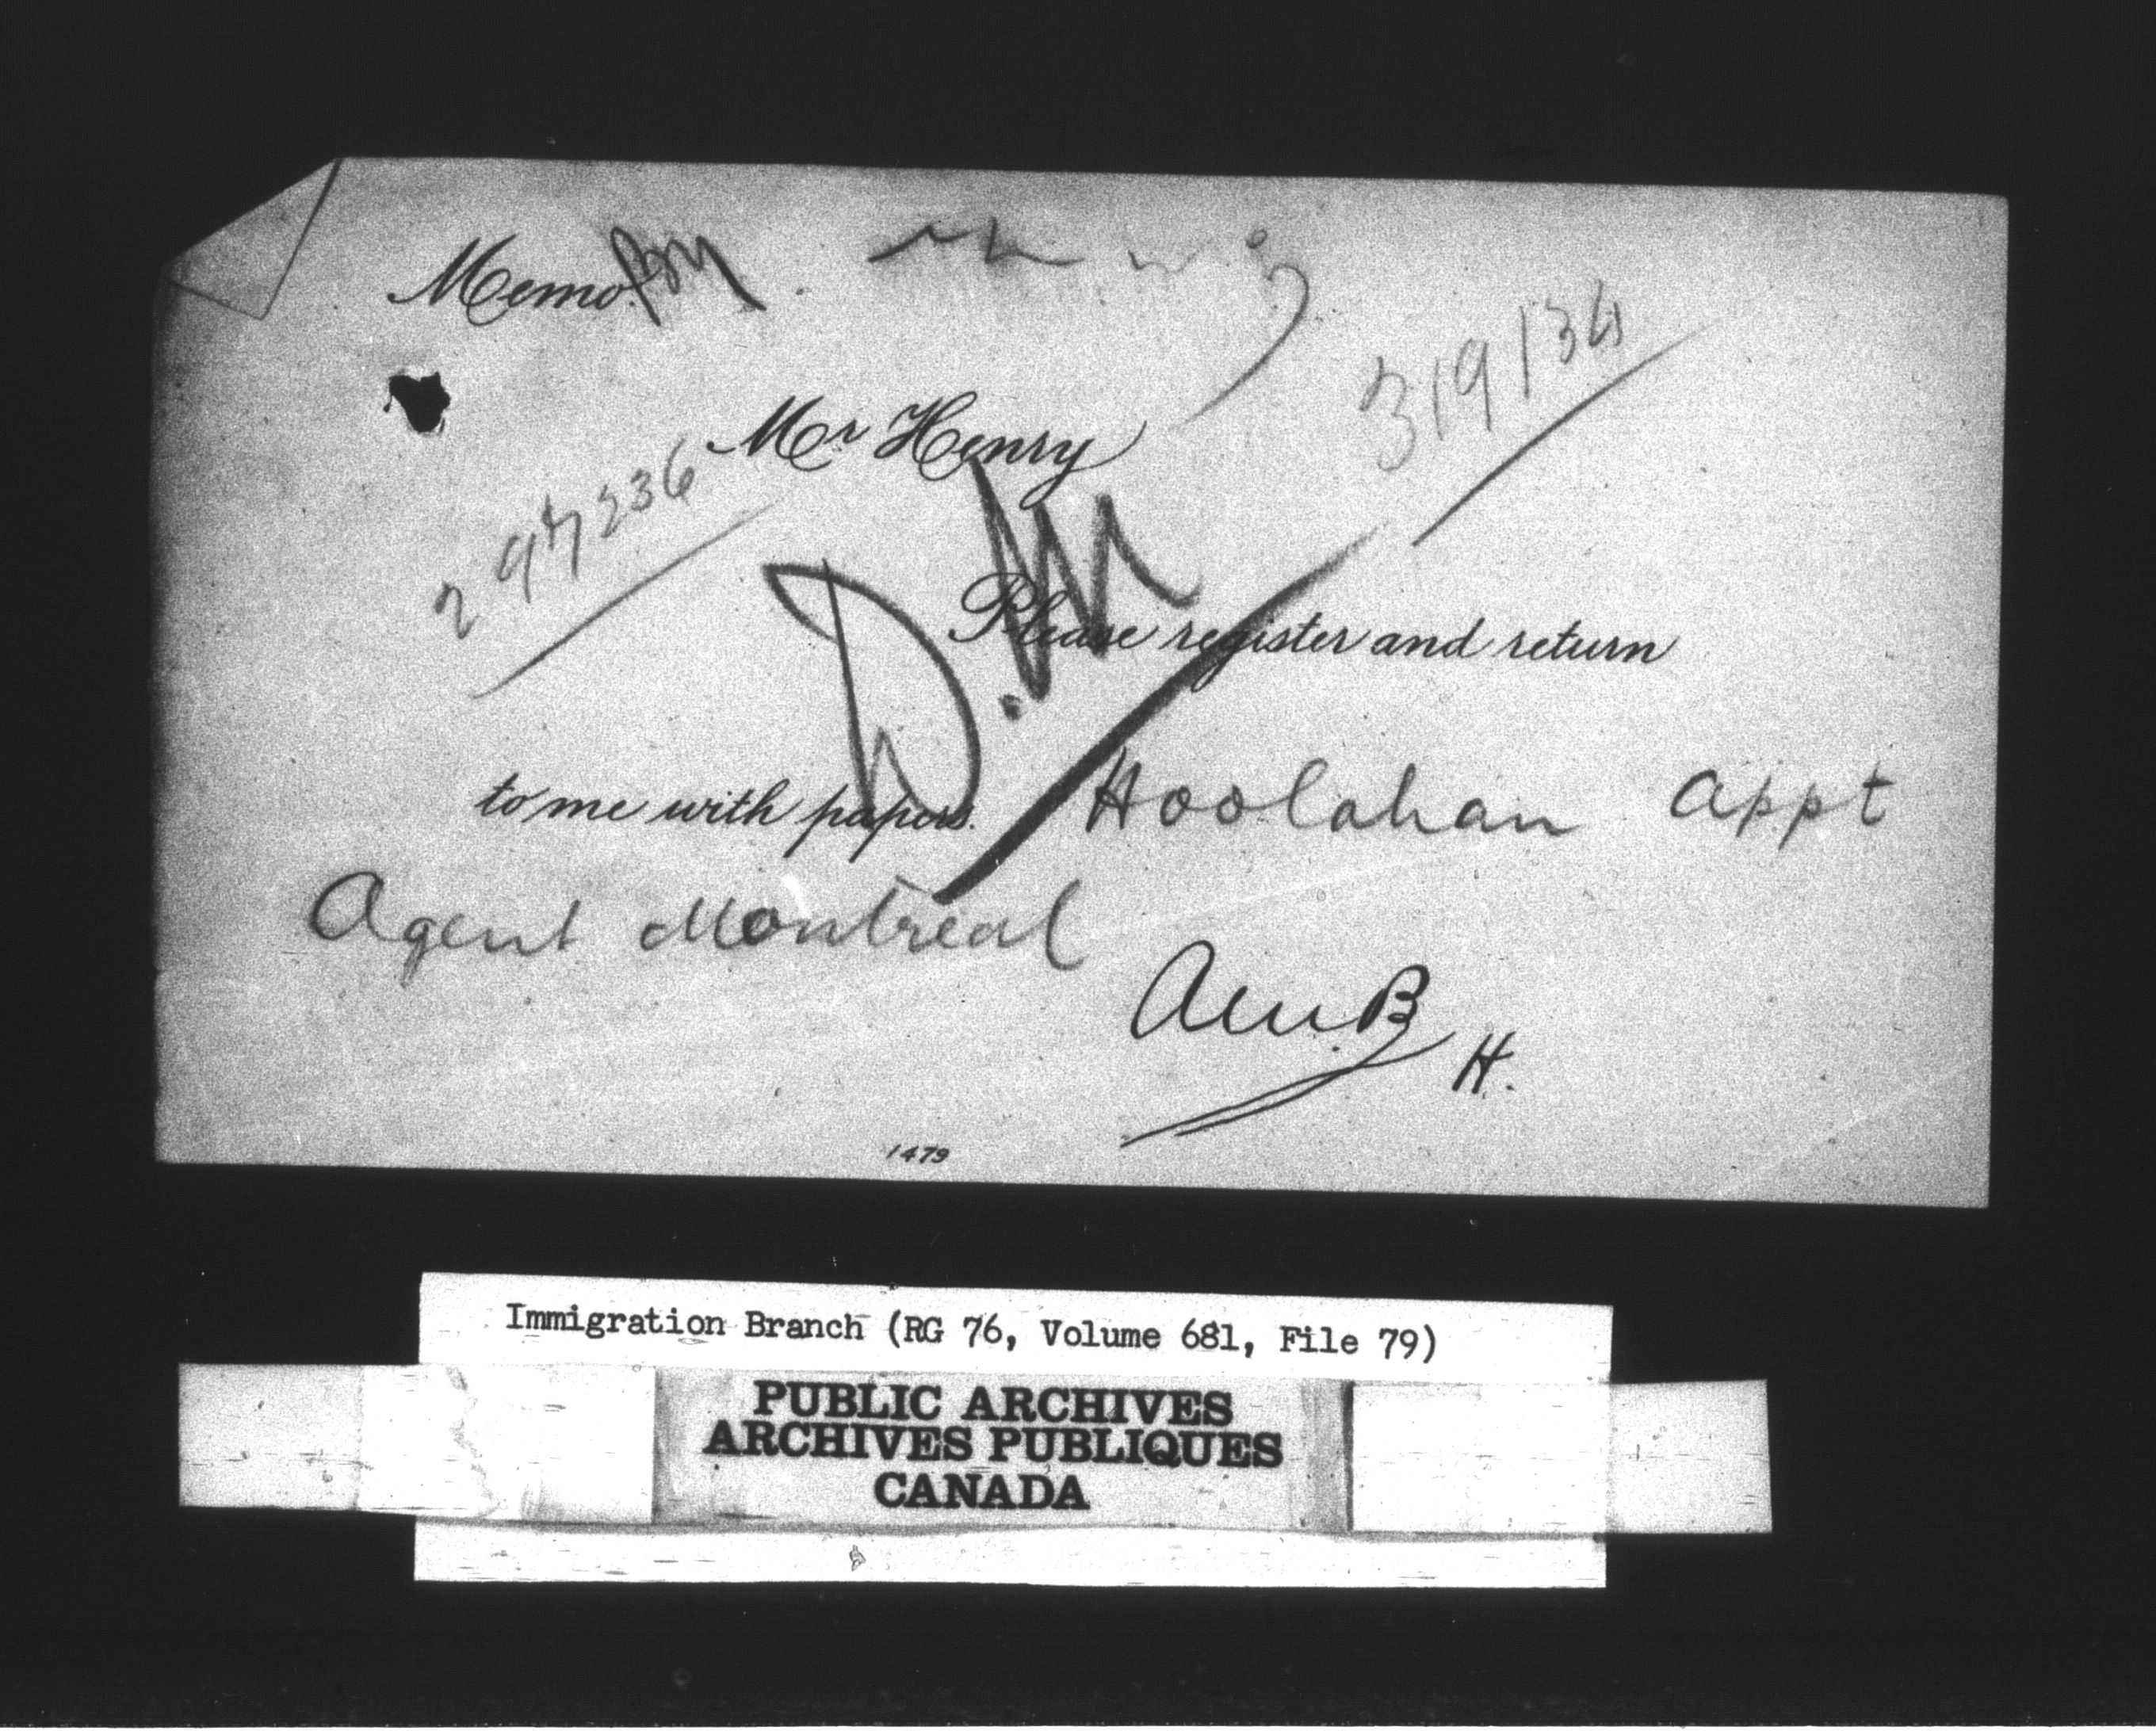 Memo.
319134
Mr Henry
297236
D.M
Please register and return
to me with papers. Hoolahan Appt
Agent Montreal
H.
1479
Immigration Branch (RG 76, Volume 681, File 79)
PUBLIC ARCHIVES
ARCHIVES PUBLIQUES
CANADA